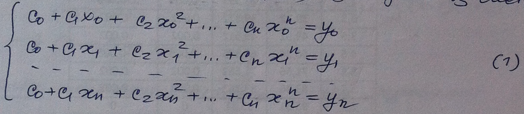 c₀ + c₁x₀ + c₂x₀² + ... + cₙx₀ⁿ = y₀
c₀ + c₁x₁ + c₂x₁² + ... + cₙx₁ⁿ = y₁ (1)
- - - - - - - - - - - -
c₀ + c₁xₙ + c₂xₙ² + ... + cₙxₙⁿ = yₙ